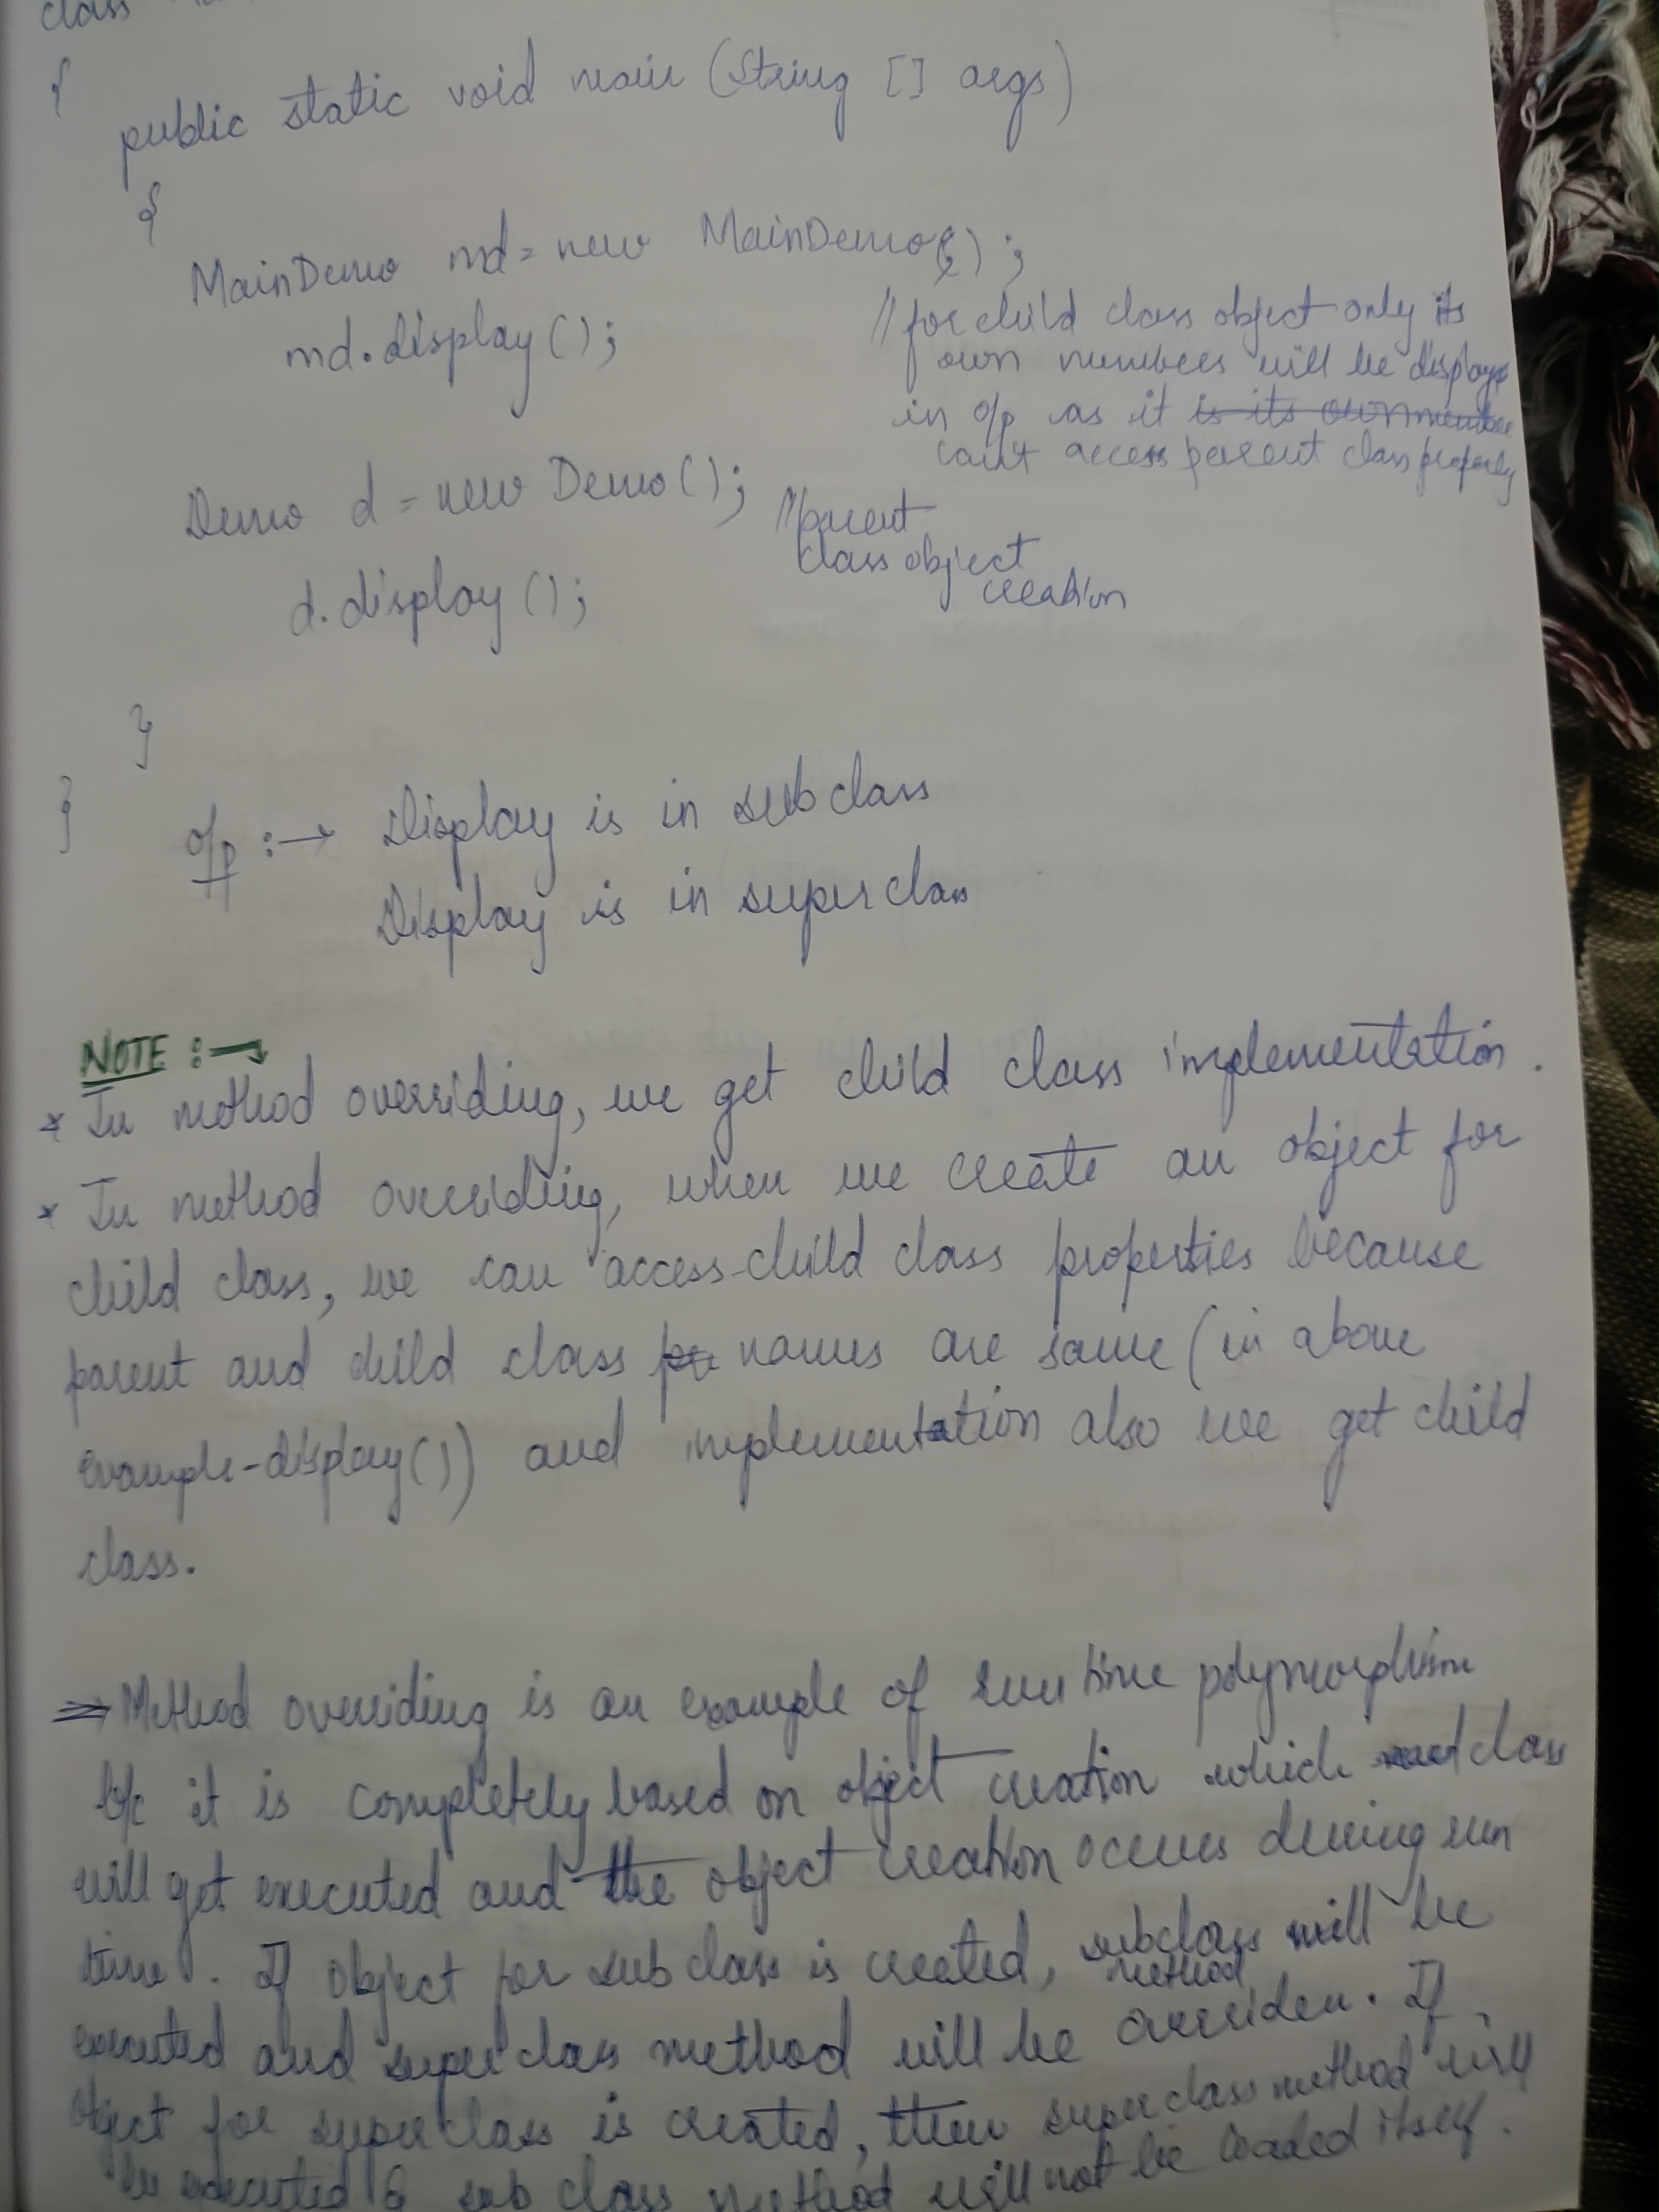 class
{
public static void main (String [] args)
{
MainDemo md = new MainDemo();
md.display();
//for child class object only its
own members will be display
in o/p as it is its own member
can't access parent class property
Demo d = new Demo();
//parent
class object
creation
d.display();
}
}
o/p :→ Display is in subclass
Display is in superclass
NOTE :→
* In method overriding, we get child class implementation.
* In method overriding, when we create an object for
child class, we can access child class properties because
parent and child class names are same (in above
example-display()) and implementation also we get child
class.
⇒ Method overriding is an example of run time polymorphism
b/c it is completely based on object creation which class
will get executed and the object creation occurs during run
time. If object for sub class is created, subclass method will be
executed and super class method will be overriden. If
object for superclass is created, then superclass method will
be executed & sub class method will not be loaded itself.